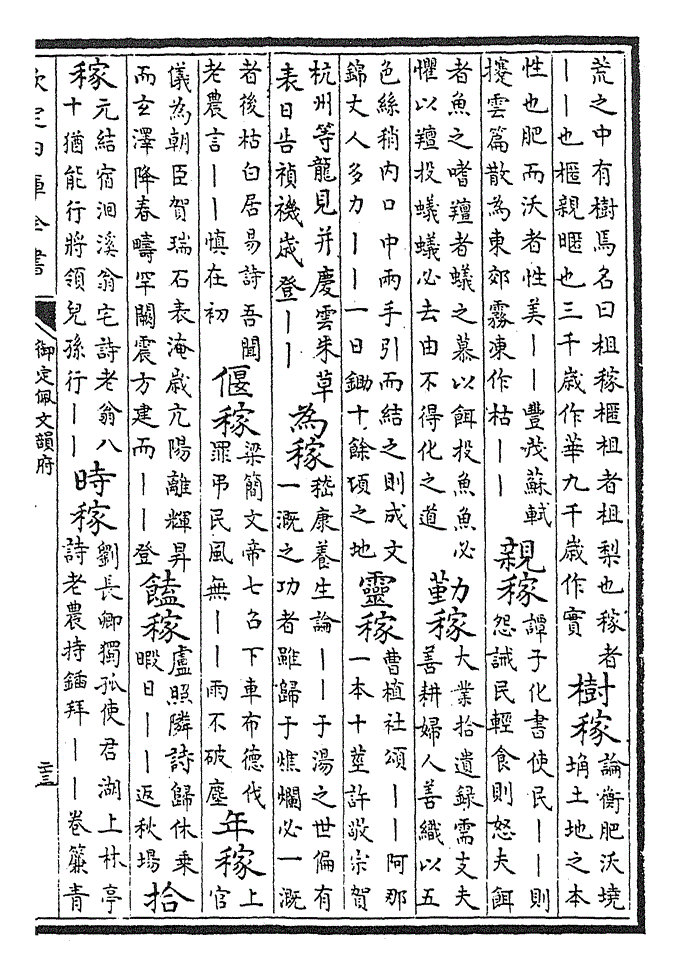 荒之中有樹焉名曰柤稼櫃柤者柤梨也稼者
｜｜也櫃親暱也三千歲作華九千歲作實
樹稼
論衡肥沃墝
埆土地之本
性也肥而沃者性美｜｜豐茂蘇軾
攓雲篇散為東郊霧凍作枯｜｜
親稼
譚子化書使民｜｜則
怨誡民輕食則怒夫餌
者魚之嗜羶者蟻之慕以餌投魚魚必
懼以羶投蟻蟻必去由不得化之道
勤稼
大業拾遺録需支夫
善耕婦人善織以五
色絲稍内口中兩手引而結之則成文
錦丈人多力｜｜一日鋤十餘頃之地
靈稼
曹植社頌｜｜阿那
一本十莖許敬宗賀
杭州等龍見并慶雲朱草
表日告禎禨歲登｜｜
為稼
嵇康養生論｜｜于湯之世偏有
一溉之功者雖歸于燋爛必一溉
者後枯白居易詩吾聞
老農言｜｜慎在初
偃稼
梁簡文帝七召下車布德伐
罪弔民風無｜｜雨不破塵
年稼
上
官
儀為朝臣賀瑞石表淹歲亢陽離輝昇
而玄澤降春疇罕闢震方建而｜｜登
饁稼
盧照隣詩歸休乗
暇日｜｜返秋場
拾
稼
元結宿洄溪翁宅詩老翁八
十猶能行將領兒孫行｜｜
時稼
劉長卿獨孤使君湖上林亭
詩老農持鍤拜｜｜卷簾青
欽定四庫全書
御定佩文韻府
二三